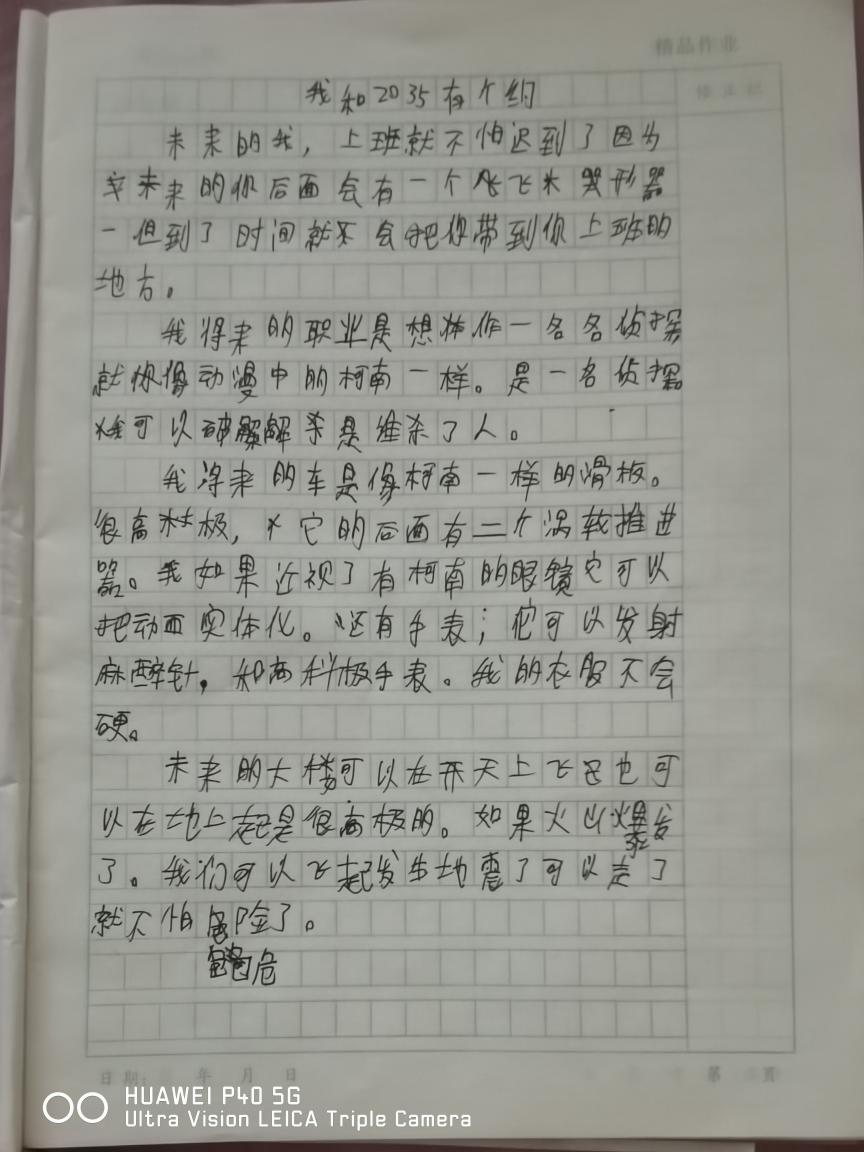 精品作业
我和2035有个约
未来的我，上班就不怕迟到了因为
未来的你后面会有一个飞米形器
一但到了时间就不会把你带到你上班的
地方。
我将来的职业是想作一名名侦探
就你像动漫中的柯南一样。是一名侦探
可以破解杀是谁杀了人。
我将来的车是像柯南一样的滑板。
很高极，它的后面有二个涡轮推进
器。我如果近视了有柯南的眼镜它可以
把动画实体化。还有手表；它可以发射
麻醉针，和高科极手表。我的衣服不会
硬。
未来的大楼可以在开天上飞也可
以在地上起是很高极的。如果火山爆发
了。我们可以飞起发生地震了可以走了
就不怕险了。
危
日期： 年 月 日 第 页
HUAWEI P40 5G
Ultra Vision LEICA Triple Camera